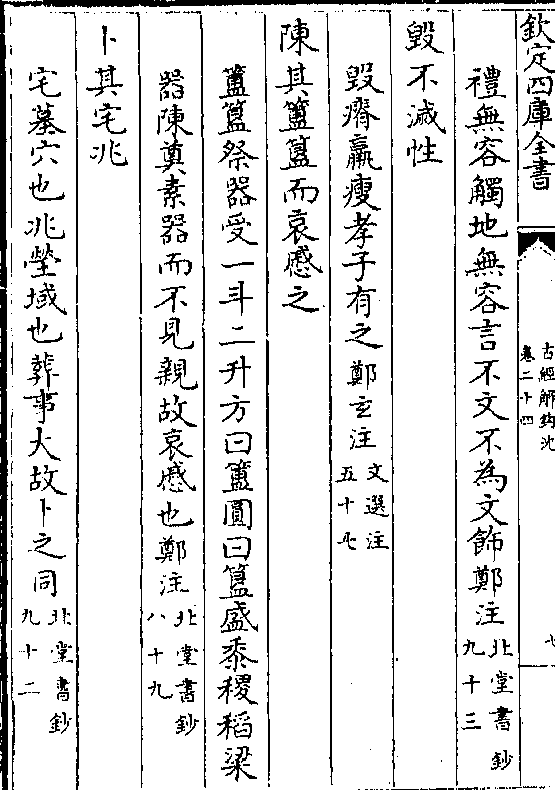 欽定四庫全書
古經解鉤沈
卷二十四
七
禮無容觸地無容言不文不為文飾鄭注北堂書鈔九十三
毀不滅性
毀瘠羸瘦孝子有之鄭玄注文選注五十七
陳其簠簋而哀慼之
簠簋祭器受一斗二升方曰簠圓曰簋盛黍稷稻粱
器陳奠素器而不見親故哀慼也鄭注北堂書鈔八十九
卜其宅兆
宅墓穴也兆塋域也葬事大故卜之同北堂書鈔九十二